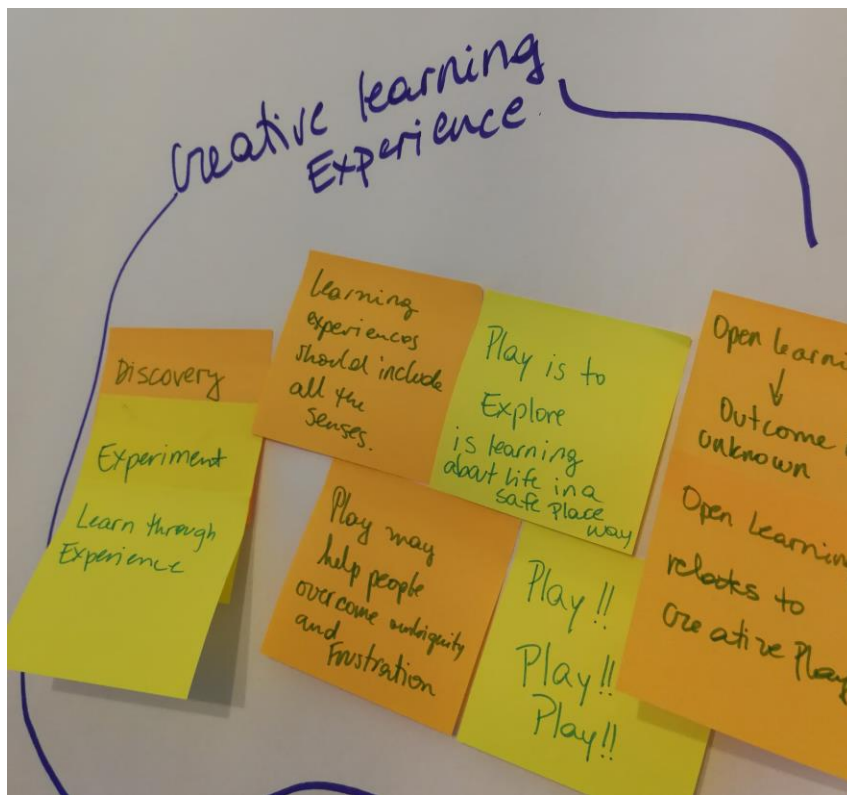 Creative learning
Experience
Discovery
Experiment
Learn through
Experience
Learning
experiences
should include
all the
senses.
Play is to
Explore
is learning
about life in a
safe place
way
Play may
help people
overcome ambiguity
and
Frustration
Play!!
Play!!
Play!!
Open learni
↓
Outcome
unknown
Open Learning
relates to
Creative Play